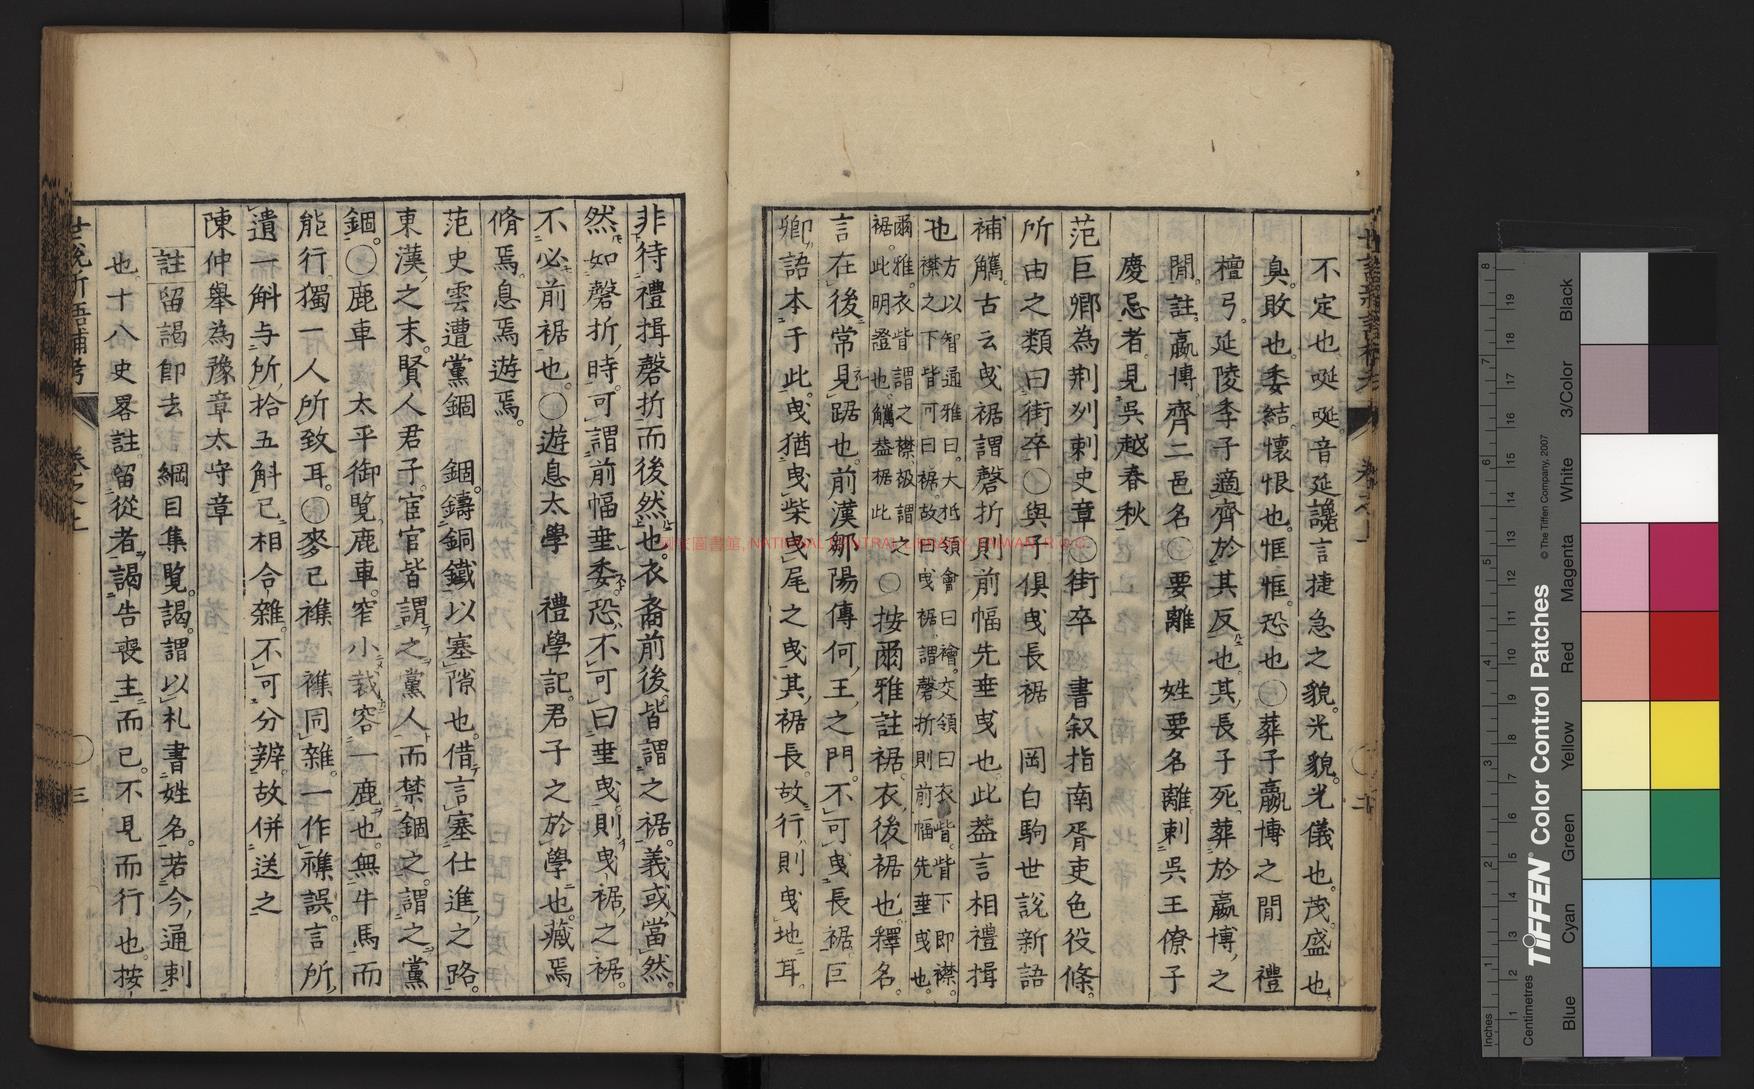 不定也唌唌音延讒言捷急之貌光貌光儀也茂盛也
臭敗也委結懷恨也恇恇恐也〇葬子嬴博之間 禮
檀弓延陵季子適齊於其反也其長子死葬於嬴博之
間註嬴博齊二邑名〇要離 姓要名離刺吳王僚子
慶忌者見吳越春秋
范巨卿為荆刕刺史章〇街卒 書叙指南胥吏色役條
所由之類曰街卒〇與子俱曳長裾 岡白駒世說新語
補觿古云曳裾謂磬折則前幅先垂曳也此葢言相禮揖
也方以智通雅曰大抵領會曰襘交領曰衣皆皆下即襟
襟之下皆可曰裾故曰曳裾謂磬折則前幅先垂曳也
爾雅衣皆謂之襟衱謂之
裾此明證也觿葢据此
〇按爾雅註裾衣後裾也釋名
言在後常見踞也前漢鄒陽傳何王之門不可曳長裾巨
卿語本于此曳猶曳柴曳尾之曳其裾長故行則曳地耳
非待禮揖磬折而後然也衣裔前後皆謂之裾義或當然
然如磬折時可謂前幅垂委恐不可曰垂曳則曳裾之裾
不必前裾也〇遊息太學 禮學記君子之於學也藏焉
脩焉息焉遊焉
范史雲遭黨錮 錮鑄銅鐵以塞隙也借言塞仕進之路
東漢之末賢人君子宦官皆謂之黨人而禁錮之謂之黨
錮〇鹿車 太平御覽鹿車窄小裁容一鹿也無牛馬而
能行獨一人所致耳〇麥已襍 襍同雜一作襍誤言所
遺一斛与所拾五斛已相合雜不可分辨故併送之
陳仲舉為豫章太守章
註留謁即去 綱目集覽謁謂以札書姓名若今通刺
也十八史畧註留從者謁告喪主而已不見而行也按
世說新語補考 卷之上 三
NATIONAL CENTRAL LIBRARY
Inches
Centimetres
TIFFEN Color Control Patches
© The Tiffen Company, 2007
Blue
Cyan
Green
Yellow
Red
Magenta
White
3/Color
Black